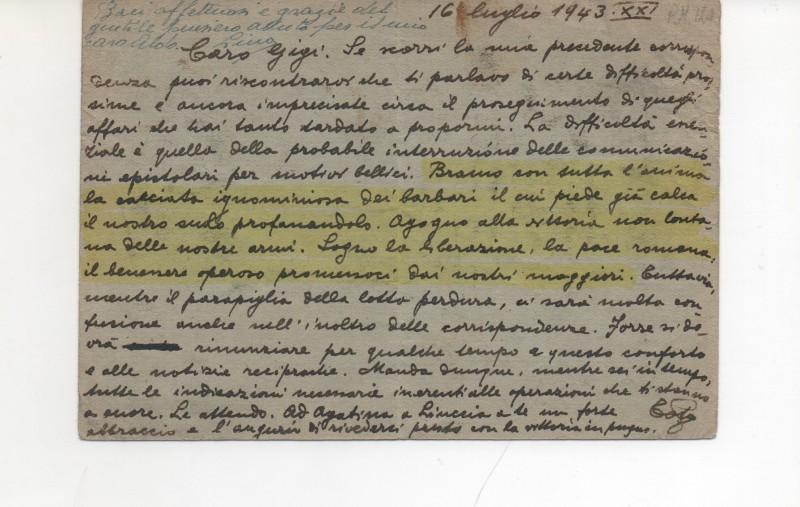 Baci affettuosi e grazie del
gentile pensiero avuto per il mio
caro Aldo. Lina
16 luglio 1943. XXI
Caro Gigi. Se scorri la mia precedente corrispon
denza puoi riscontrarvi che ti parlavo di certe difficoltà pros
sime e ancora imprecisate circa il proseguimento di quegli
affari che hai tanto tardato a propormi. La difficoltà essen
ziale è quella della probabile interruzione delle comunicazio
ni epistolari per motivi bellici. Bramo con tutta l'anima
la cacciata ignominiosa dei barbari il cui piede già calca
il nostro suolo profanandolo. Agogno alla vittoria non lonta
na delle nostre armi. Sogno la liberazione, la pace romana,
il benessere operoso promessoci dai nostri maggiori. Tuttavia,
mentre il parapiglia della lotta perdura, ci sarà molta con
fusione anche nell'inoltro delle corrispondenze. Forse si do
vrà rinunziare per qualche tempo a questo conforto
e alle notizie reciproche. Manda dunque, mentre sei in tempo,
tutte le indicazioni necessarie inerenti alle operazioni che ti stanno
a cuore. Le attendo. Ad Agatina a Linuccia a te un forte
abbraccio e l'augurio di rivederci presto con la vittoria in pugno.